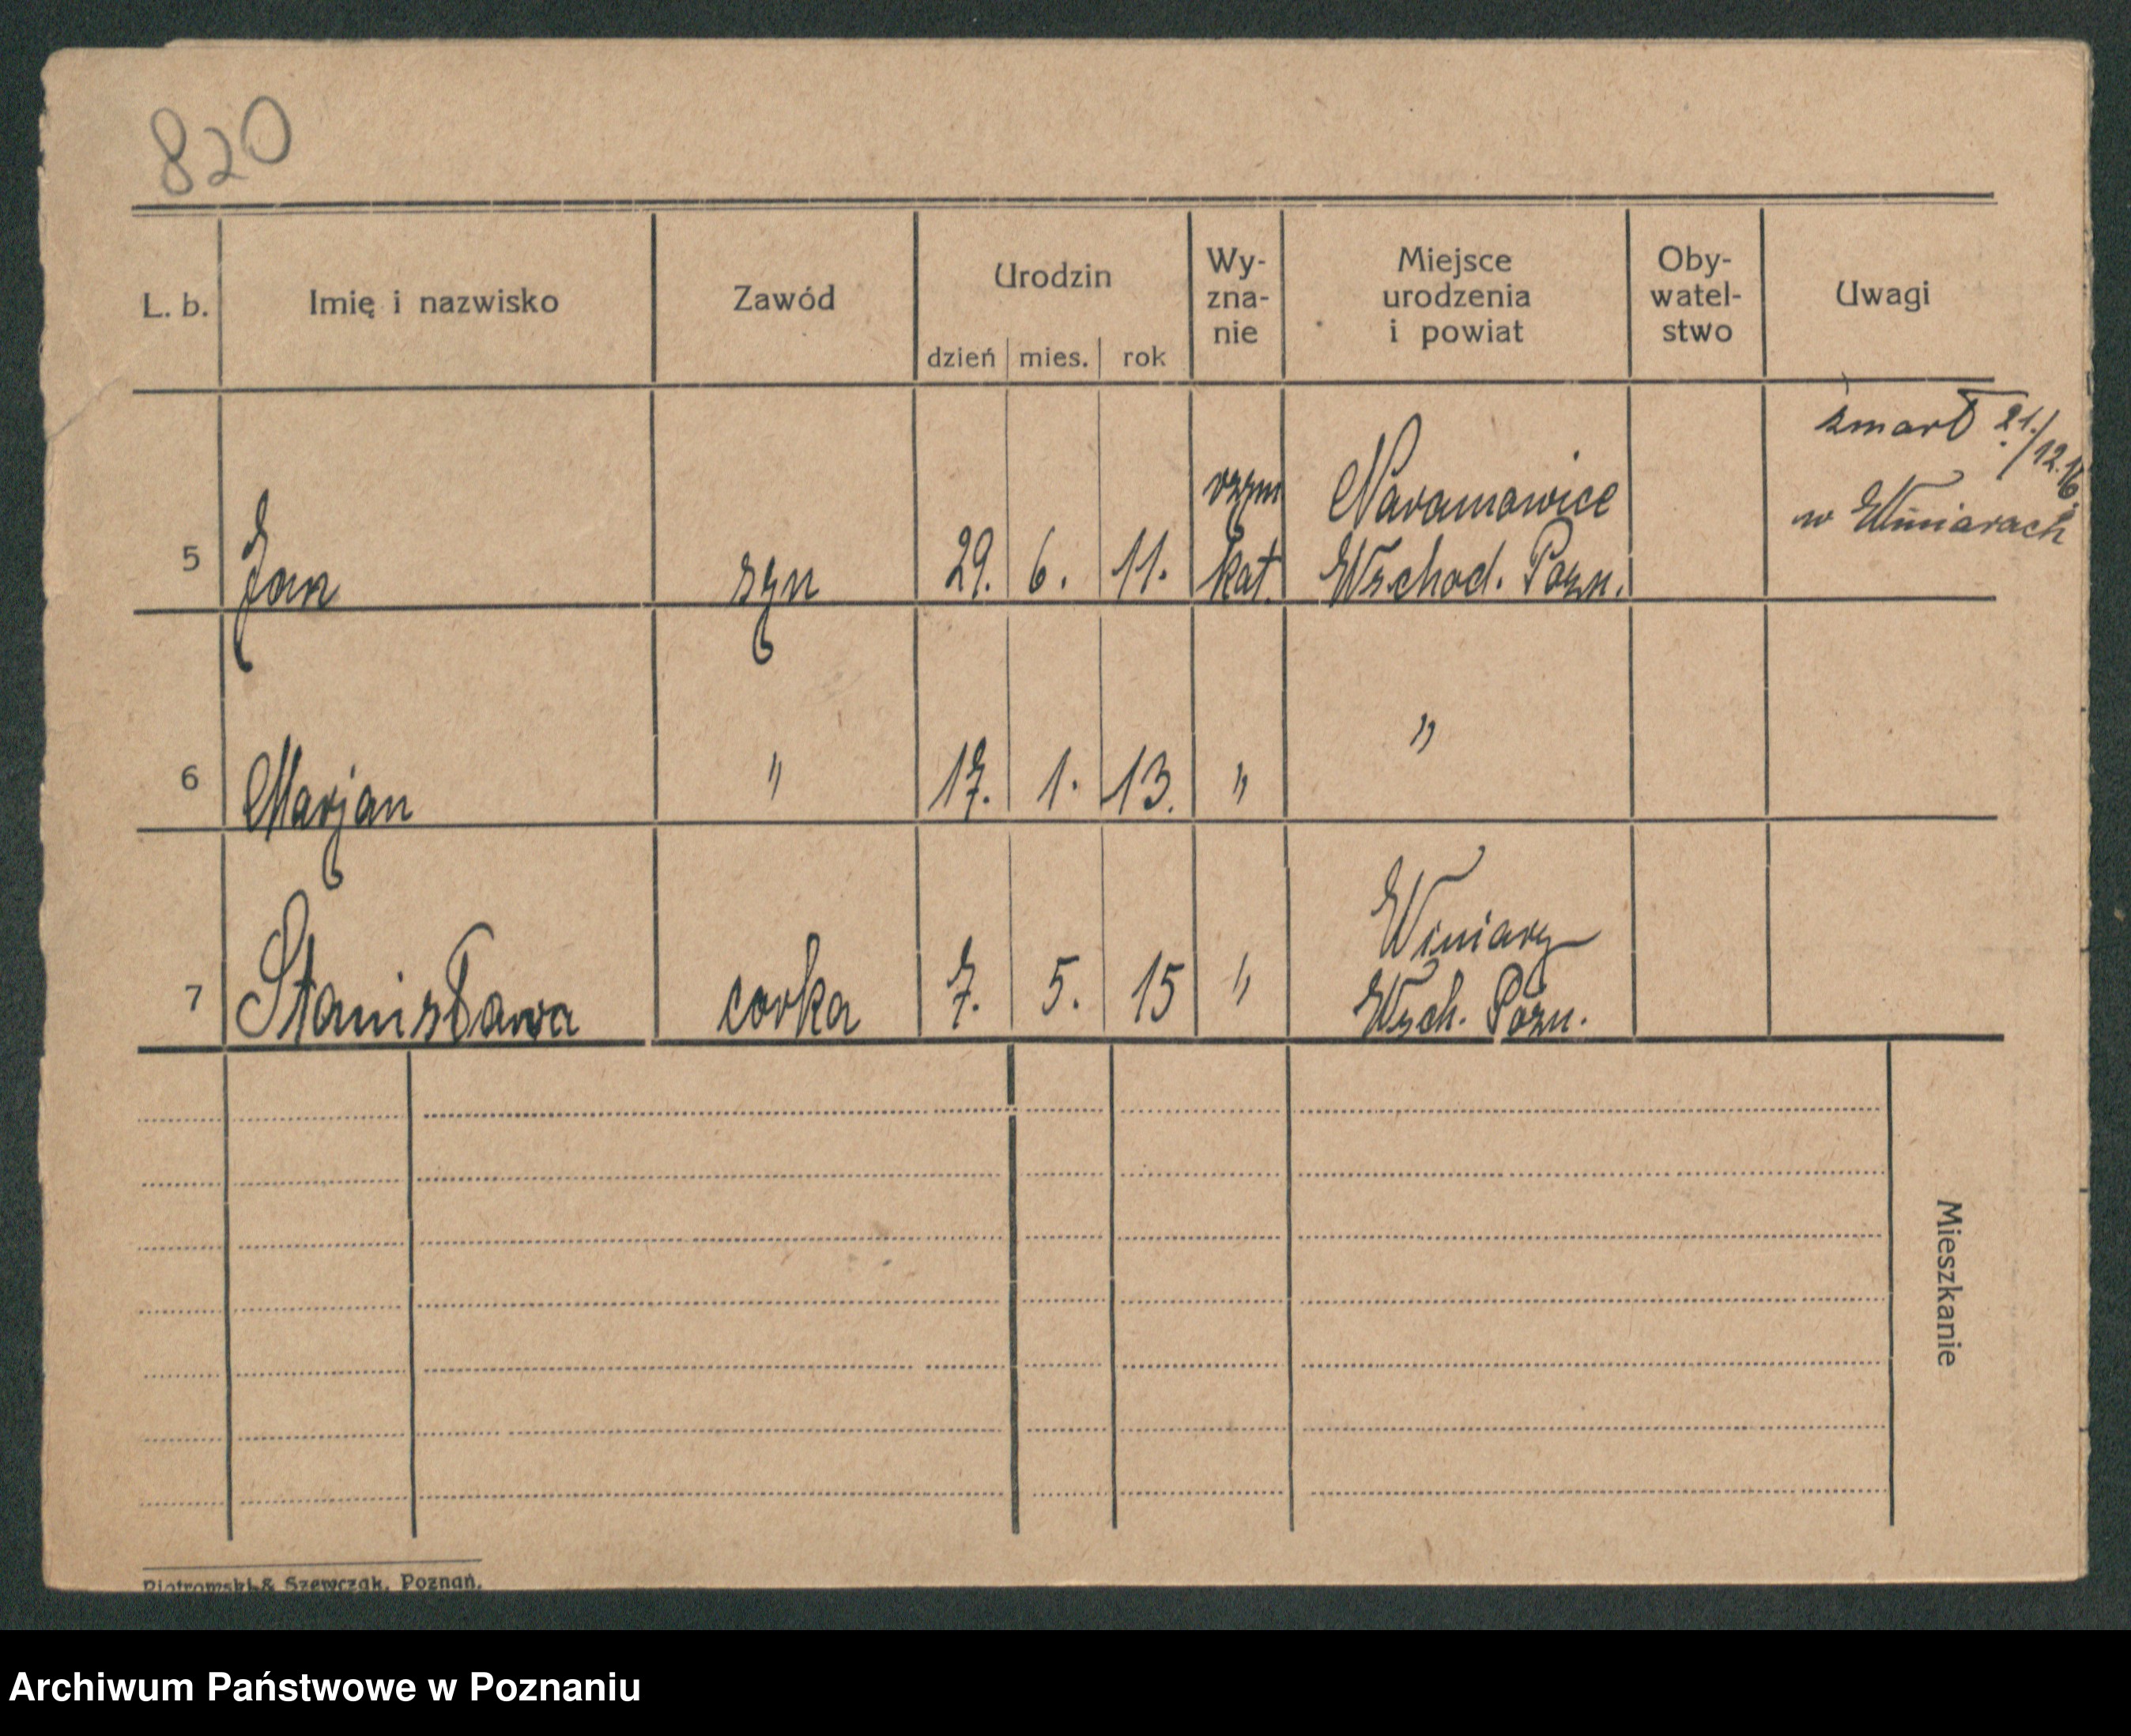 820
L. b. Imię i nazwisko Zawód Urodzin dzień mies. rok Wy- zna- nie Miejsce urodzenia i powiat Oby- watel- stwo Uwagi
zmarł 21./12.16.
w Winiarach
5 Jan syn 29. 6. 11. rzym kat. Naramowice Wschod. Pozn.
6 Marjan " 17. 1. 13. " "
7 Stanisława corka 7. 5. 15 " Winiary Wsch. Pozn.
Mieszkanie
Piotrowski & Szewczak, Poznań.
Archiwum Państwowe w Poznaniu